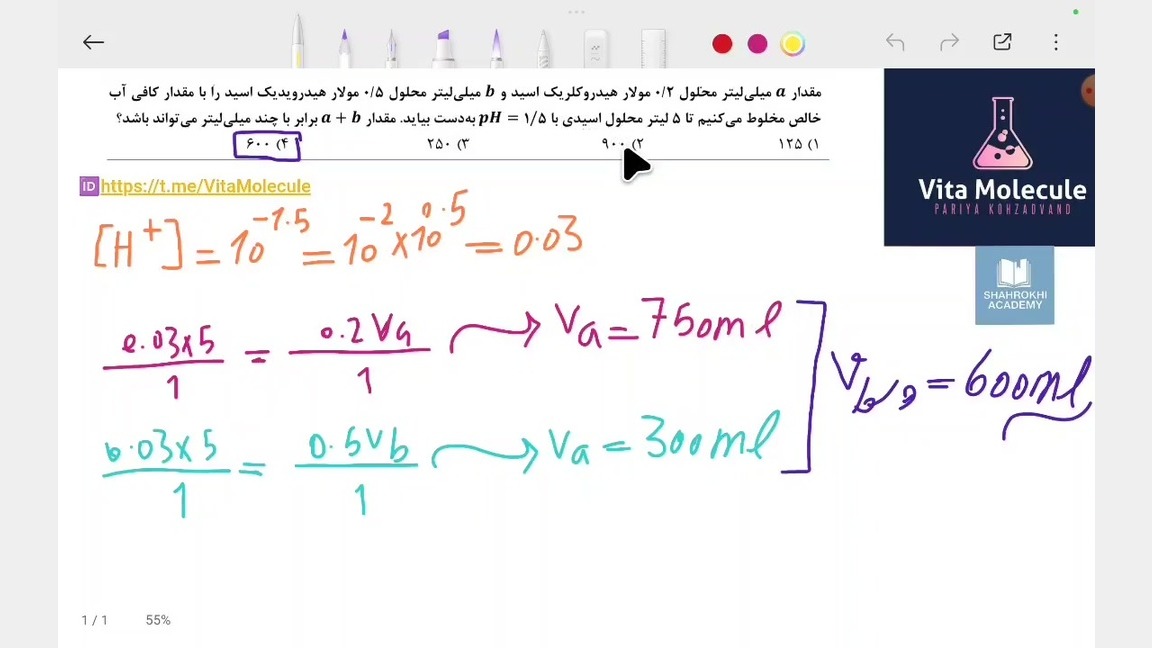 مقدار a میلی‌لیتر محلول ۰/۲ مولار هیدروکلریک اسید و b میلی‌لیتر محلول ۰/۵ مولار هیدرویدیک اسید را با مقدار کافی آب
خالص مخلوط می‌کنیم تا ۵ لیتر محلول اسیدی با pH = ۱/۵ به‌دست بیاید. مقدار a + b برابر با چند میلی‌لیتر می‌تواند باشد؟
۱) ۱۲۵ ۲) ۹۰۰ ۳) ۲۵۰ ۴) ۶۰۰
ID https://t.me/VitaMolecule
Vita Molecule
PARIYA KOHZADVAND
SHAHROKHI
ACADEMY
[H+] = 10^-1.5 = 10^-2 × 10^0.5 = 0.03
0.03×5 / 1 = 0.2 Va / 1 → Va = 750 ml
0.03×5 / 1 = 0.5 Vb / 1 → Va = 300 ml
= 600 ml
1 / 1 55%